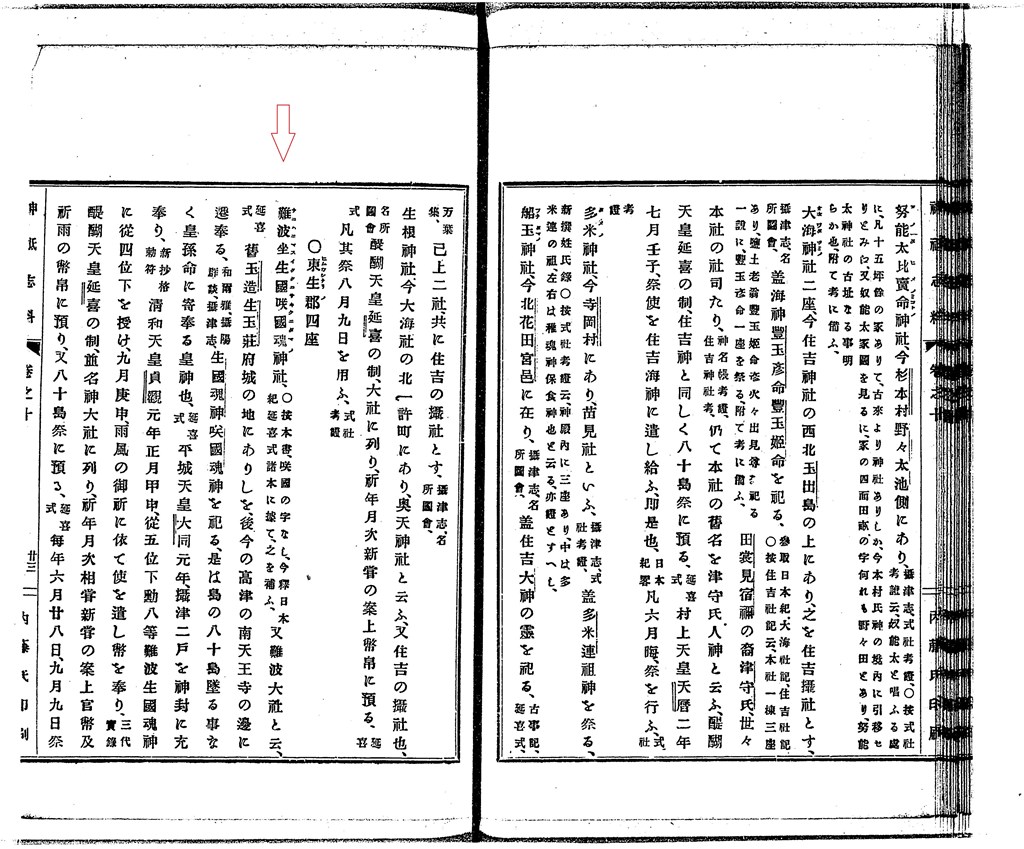 努能太比賣命神社、今杉本村野々太池側にあり、攝津志、式社考證、〇按式社考證云、奴能太と唱ふる處
に、凡十五年餘の家ありて、古來より神社ありしか、今本村氏神の境內に引移せ
りとみゆ又奴能太冢圖を見るに冢の四面田畝の字何れも野々田とあり、努能
太神社の古址なる事明
らか也、附て考に備ふ、
大海神社二座、今住吉神社の西北玉出島の上にあり、之を住吉攝社とす、
攝津志、名所圖會、蓋海神豐玉彥命豐玉姬命を祀る、參取日本紀大海社記、住吉社記〇按住吉社記云、本社一棟三座
あり、鹽土老翁豐玉姬命彥火々出見尊を祀る
一說に、豐玉彥命一座を祭る、附て考に備ふ、田裳見宿禰の裔津守氏、世々
本社の社司たり、神名帳考證、住吉神社考、仍て本社の舊名を津守氏人神と云ふ、醍醐
天皇延喜の制、住吉神と同しく八十島祭に預る、延喜式、村上天皇天曆二年
七月壬子、祭使を住吉海神に遣し給ふ、即是也、日本紀畧凡六月晦、祭を行ふ、式社
考證
多米神社、今寺岡村にあり、苗見社といふ、攝津志、式社考證、蓋多米連祖神を祭る、
新撰姓氏錄〇按式社考證云、神殿內に三座あり、中は多
米連の祖、左右は稚魂神保食神也と云る、亦證とすへし、
船玉神社、今北花田宮邑に在り、攝津志、名所圖會、蓋住吉大神の靈を祀る、古事記、延喜式、
万葉集、已上二社、共に住吉の攝社とす、攝津志名所圖會、
生根神社、今大海社の北一許町にあり、奧天神社と云ふ、又住吉の攝社也、
名所圖會醍醐天皇延喜の制、大社に列り、祈年月次新嘗の案上幣帛に預る、延喜
式凡其祭八月九日を用ふ、式社考證
〇東生郡四座
難波坐生國咲國魂神社、〇按本書、咲國の字なし、今釋日本紀延喜式諸本に據て、之を補ふ、又難波大社と云、
延喜式舊玉造生玉莊府城の地にありしを、後今の高津の南天王寺の邊に
遷奉る、和爾雅、攝陽群談、攝津志、生國魂神咲國魂神を祀る、是は島の八十島墜る事な
く皇孫命に寄奉る皇神也、延喜式平城天皇大同元年、攝津二戶を神封に充
奉り、新抄格勅符淸和天皇貞觀元年正月甲申、從五位下勳八等難波生國魂神
に從四位下を授け、九月庚申、雨風の御祈に依て使を遣し幣を奉り、三代實錄
醍醐天皇延喜の制、並名神大社に列り、祈年月次相嘗新嘗の案上官幣及
祈雨の幣帛に預り、又八十島祭に預る、延喜式每年六月廿八日、九月九日祭
神祇志料 卷之十 廿三 內藤氏印刷